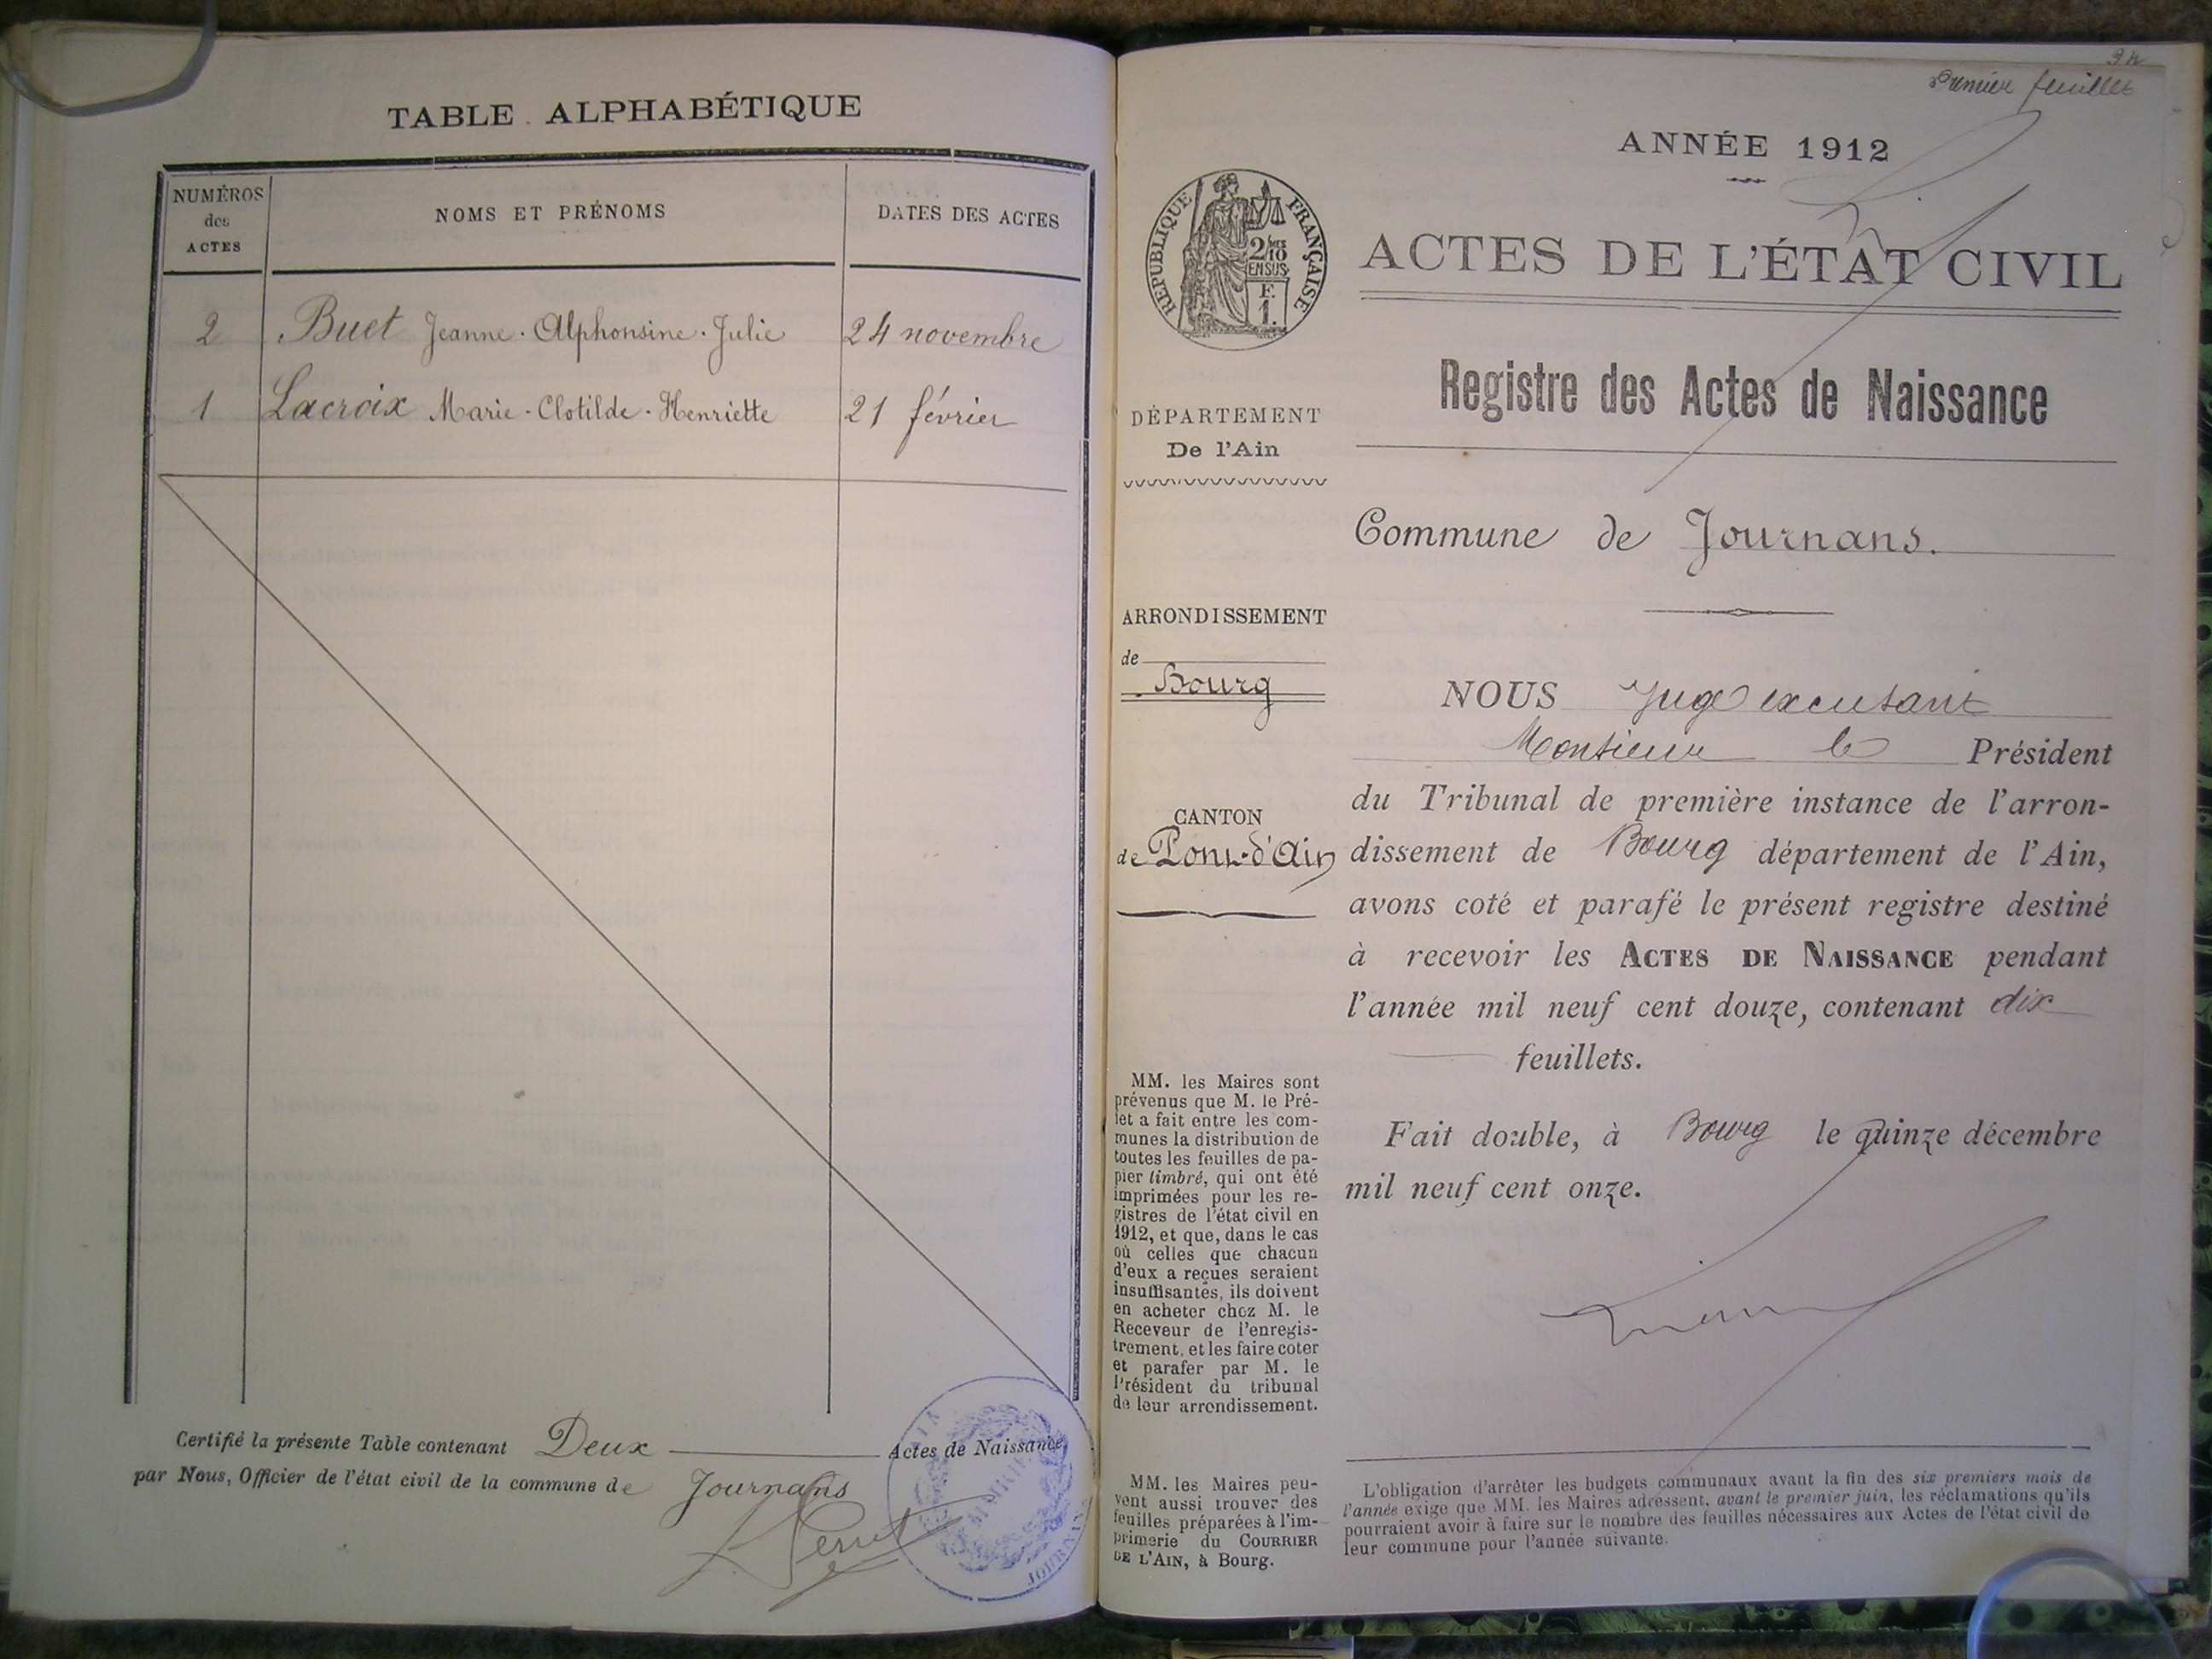 TABLE ALPHABÉTIQUE
NUMÉROS
des
ACTES
NOMS ET PRÉNOMS
DATES DES ACTES
2 Buet Jeanne-Alphonsine-Julie 24 novembre
1 Lacroix Marie-Clotilde-Henriette 21 février
Certifié la présente Table contenant Deux Actes de Naissance,
par Nous, Officier de l'état civil de la commune de Journans
Perret
MAIRIE
JOURNANS
AIN
Premier feuillet
ANNÉE 1912
RÉPUBLIQUE FRANÇAISE
2/10
EN SUS
F.
1.
ACTES DE L'ÉTAT CIVIL
Registre des Actes de Naissance
DÉPARTEMENT
De l'Ain
Commune de Journans.
ARRONDISSEMENT
de
Bourg
CANTON
de Pont-d'Ain
NOUS Juge
Monsieur le Président
du Tribunal de première instance de l'arron-
dissement de Bourg département de l'Ain,
avons coté et parafé le présent registre destiné
à recevoir les ACTES DE NAISSANCE pendant
l'année mil neuf cent douze, contenant dix
feuillets.
Fait double, à Bourg le quinze décembre
mil neuf cent onze.
MM. les Maires sont
prévenus que M. le Pré-
fet a fait entre les com-
munes la distribution de
toutes les feuilles de pa-
pier timbré, qui ont été
imprimées pour les re-
gistres de l'état civil en
1912, et que, dans le cas
où celles que chacun
d'eux a reçues seraient
insuffisantes, ils doivent
en acheter chez M. le
Receveur de l'enregis-
trement, et les faire coter
et parafer par M. le
Président du tribunal
de leur arrondissement.
MM. les Maires peu-
vent aussi trouver des
feuilles préparées à l'im-
primerie du COURRIER
DE L'AIN, à Bourg.
L'obligation d'arrêter les budgets communaux avant la fin des six premiers mois de
l'année exige que MM. les Maires adressent, avant le premier juin, les réclamations qu'ils
pourraient avoir à faire sur le nombre des feuilles nécessaires aux Actes de l'état civil de
leur commune pour l'année suivante.